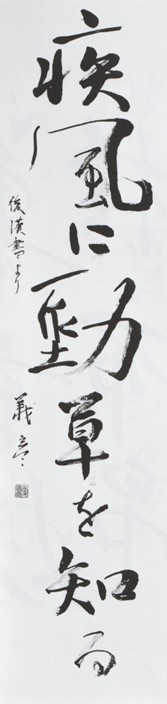 疾風に勁草を知る
後漢書より